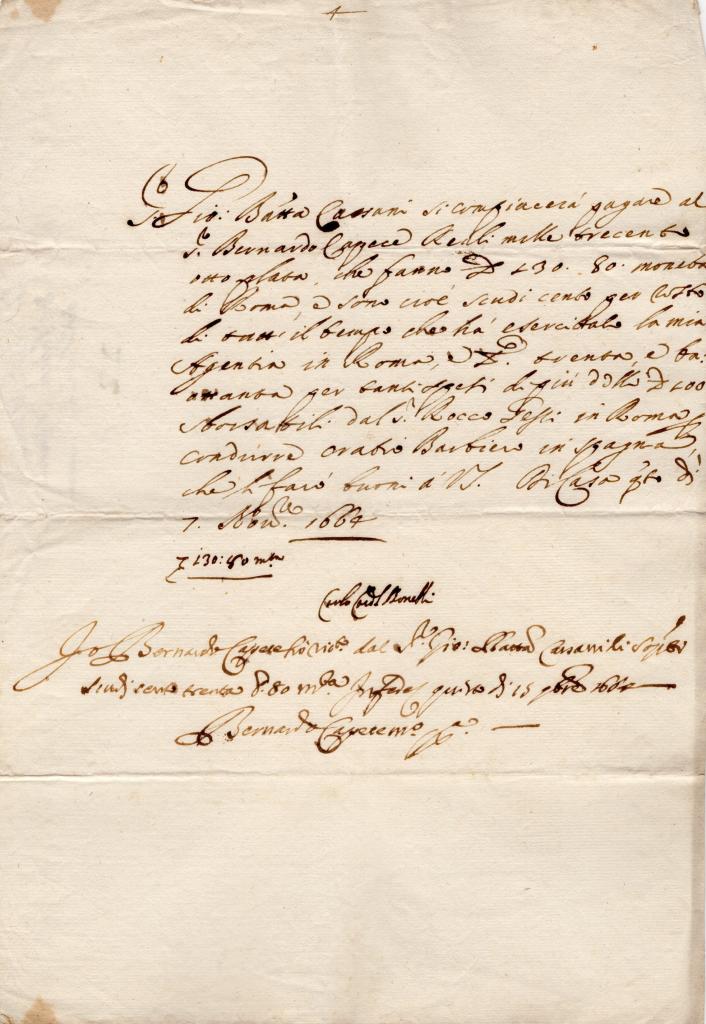 4
Sr Gio: Batta Cassani si compiacerà pagare al
Sr Bernardo Capece Reali mille trecento
otto plata, che fanno ∇ 130. 80. moneta
di Roma, e sono cioè scudi cento per
di tutti il tempo che hà esercitato la mia
Agentia in Roma, e ∇di trenta, e ba:
ottanta per tanti di più delli ∇ 100
sborsatili dal Sr Rocco in Roma p
condurre Barbiero in spagna,
che si farà buoni à VS. Di Casa qto dì
7. Novre. 1664
∇ 130: 80 mta
Carlo Cardl Bonelli
Io Bernardo Capece hò rictо dal Sr Gio: Batta Cassani li sopri
scudi cento trenta b. 80 mta In fede questo dì 15 9bre 1664
Bernardo Capece mo pa